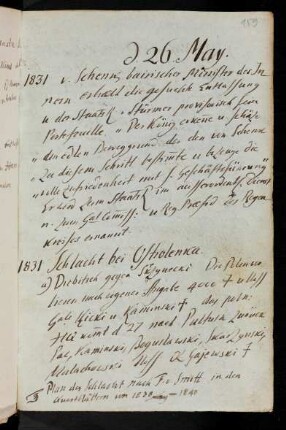 159
d 26 May.
1831 v. Schenk, bairischer Minister der In-
nern erhält die gesuchte Entlassung
u der Staatsr v. Stürmer provisorisch sein
Portefeuille. "Der König erkenne u. schätze
"den edlen Beweggrund der den von Schenk
"zu diesem Schritt bestimte u. bezeuge die
"volle zufriedenheit mit s. Geschäftsführung"
Er wird zum Staatsr Im ausserordentl. Dienst
u. zum Gal Comiss: u Reg. Präsid des Regen
kreises ernannt.
1831 Schlacht bei Ostrolenka
a) Diebitsch gegen Die Polen
nach eigener Angabe 4000 †
Gale Kicki u Kaminski † des poln:
d 27 nach Pultusk
Pac, Kaminski, Boguslawski,
Malachowski Gajewski †
Plan der Schlacht nach F. v. Smitt in den
um 1839 1840